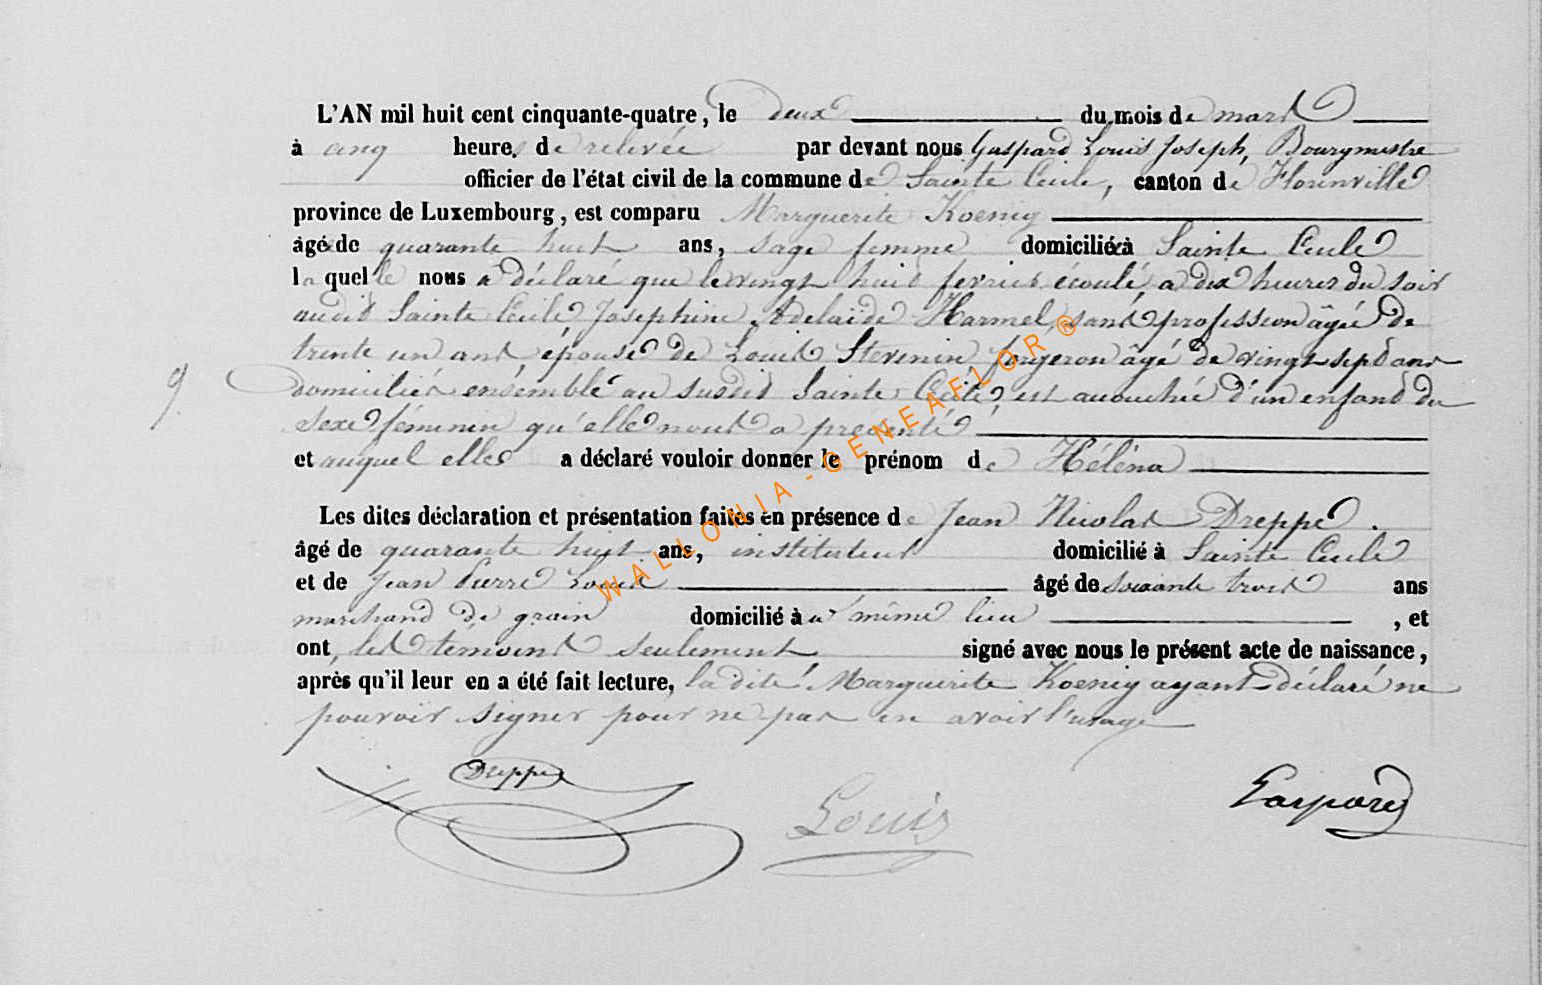 L'AN mil huit cent cinquante-quatre, le deux du mois de mars
à cinq heures de relevée par devant nous Gaspard Louis Joseph, Bourgmestre
officier de l'état civil de la commune de Sainte Cecile, canton de Florenville
province de Luxembourg, est comparu Marguerite Koenig
âgée de quarante huit ans, sage femme domiciliée à Sainte Cecile
laquelle nous a déclaré que le vingt huit février écoulé a dix heures du soir
audit Sainte Cecile Josephine Adelaïde Harmel, sans profession âgée de
trente un ans épouse de Louis Stevenin forgeron âgé de vingt sept ans
domiciliés ensemble au susdit Sainte Cecile, est accouchée d'un enfant du
sexe féminin qu'elle nous a présenté
et auquel elle a déclaré vouloir donner le prénom de Héléna
Les dites déclaration et présentation faites en présence de Jean Nicolas Dreppe.
âgé de quarante huit ans, instituteur domicilié à Sainte Cecile
et de Jean Pierre Louis âgé de soixante trois ans
marchand de grain domicilié à u même lieu, et
ont, les temoins seulement, signé avec nous le présent acte de naissance,
après qu'il leur en a été fait lecture, la dite Marguerite Koenig ayant déclaré ne
pouvoir signer pour ne pas en avoir l'usage
9.
Dreppe
Louis
Gaspard
WALLONIA - GENEAFLOR ®